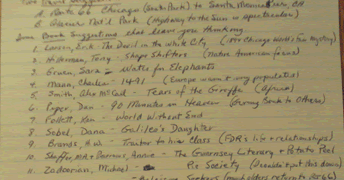 Travel Suggestions
A. Route 66 Chicago (Grant Park) to Santa Monica, CA
B. Glacier Nat'l Park (Highway to the Sun is spectacular)
Some Book Suggestions that leave you thinking.
1. Larson, Erik The Devil in the White City (1893 Chicago World's Fair Mystery)
2. Hillerman, Tony Shape Shifters (Native American focus)
3. Gruen, Sara - Water for Elephants
4. Mann, Charles - 1491 (Europe wasn't wrong populations)
5. Smith, Alex McCall - Tears of the Giraffe (Africa)
6. Piper, Don - 90 Minutes in Heaven (Giving Back to Others)
7. Follett, Ken - World Without End
8. Sobel, Dava - Galileo's Daughter
9. Brands, H.W. - Traitor to his Class (FDR's life + relationships)
10. Shaffer, M.A. + Barrows, Annie - The Guernsey Literary + Potato Peel
Pie Society (Couldn't put this down)
11. Zadoorian, Michael - Leisure Seekers